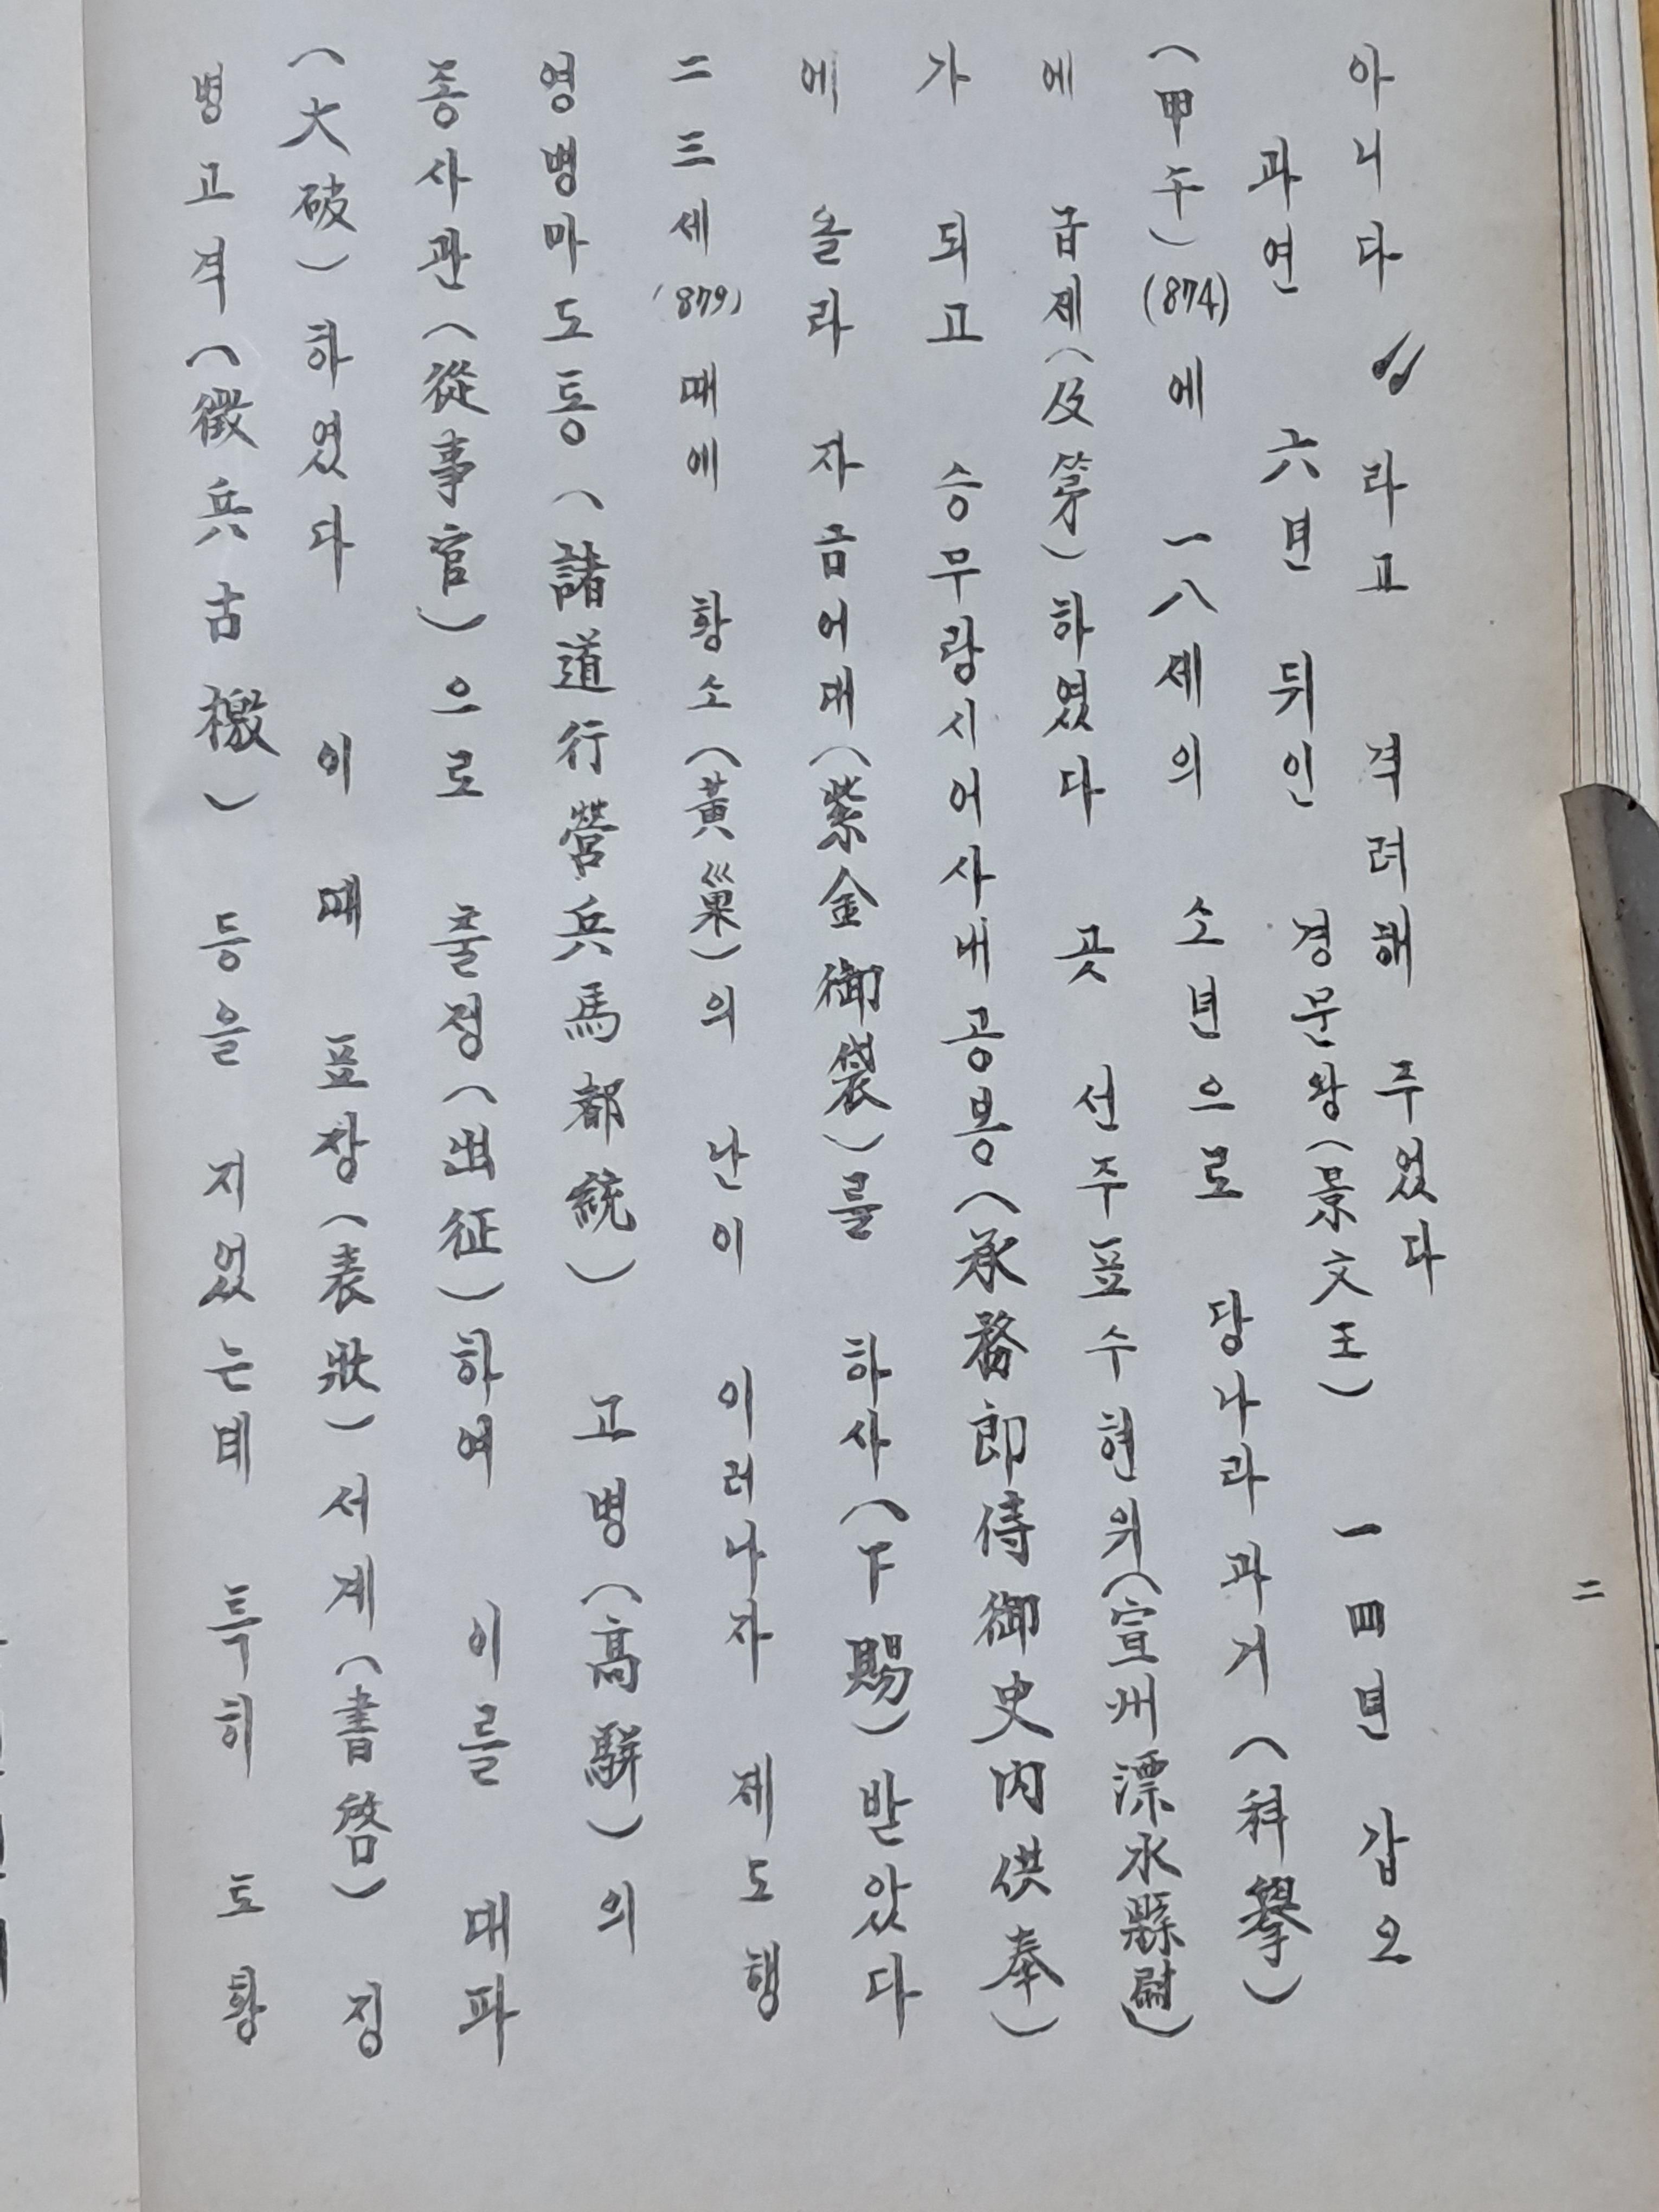 아니다〃라고 격려해 주었다
과연 六년 뒤인 경문왕(景文王) 一四년 갑오
(甲午)(874)에 一八세의 소년으로 당나라 과거(科擧)
에 급제(及第)하였다 곧 선주표수현위(宣州漂水縣尉)
가 되고 승무랑시어사내공봉(承務郎侍御史內供奉)
에 올라 자금어대(紫金御袋)를 하사(下賜)받았다
二三세(879)때에 황소(黃巢)의 난이 이러나자 제도행
영병마도통(諸道行營兵馬都統) 고병(高騈)의
종사관(從事官)으로 출정(出征)하여 이를 대파
(大破)하였다 이때 표장(表狀)서계(書啓) 징
병고격(徵兵古檄) 등을 지었는데 특히 토황
二